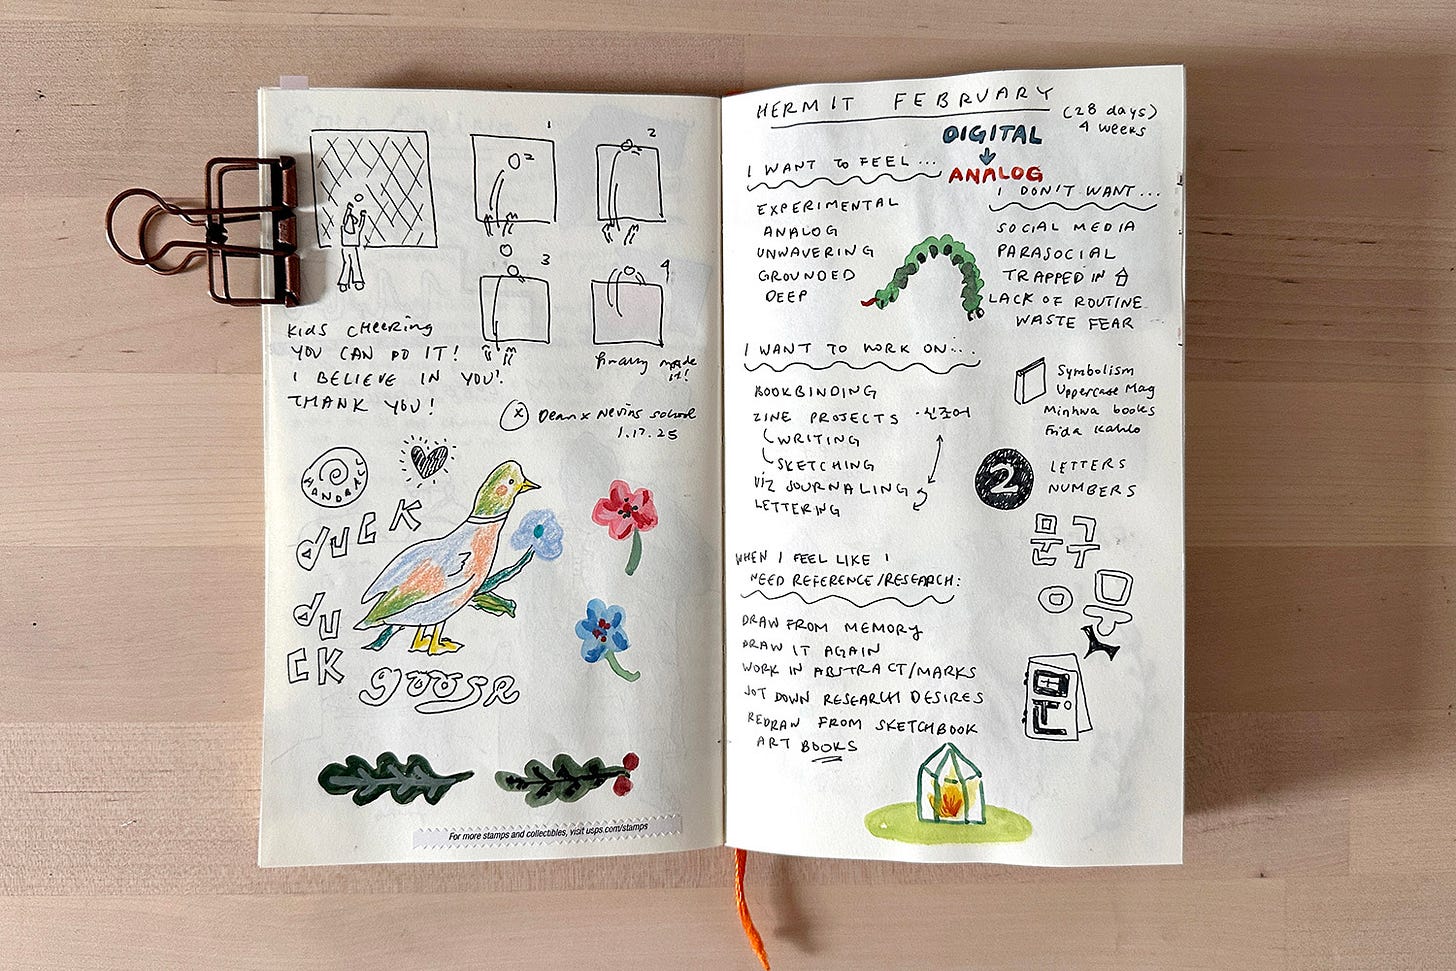 1
2
3
4
KIDS CHEERING
YOU CAN DO IT!
I BELIEVE IN YOU!
THANK YOU!
finally made it!
Dean x Nevins school
1.17.25
HANDBALL
DUCK
DU
CK
goose
For more stamps and collectibles, visit usps.com/stamps
HERMIT FEBRUARY (28 days)
4 weeks
DIGITAL
ANALOG
I WANT TO FEEL...
EXPERIMENTAL
ANALOG
UNWAVERING
GROUNDED
DEEP
I DON'T WANT...
SOCIAL MEDIA
PARASOCIAL
TRAPPED IN
LACK OF ROUTINE
WASTE FEAR
I WANT TO WORK ON...
BOOKBINDING
ZINE PROJECTS · 신조어
WRITING
SKETCHING
VIZ JOURNALING
LETTERING
Symbolism
Uppercase Mag
Minhwa books
Frida Kahlo
2
LETTERS
NUMBERS
문구
WHEN I FEEL LIKE I
NEED REFERENCE/RESEARCH:
DRAW FROM MEMORY
DRAW IT AGAIN
WORK IN ABSTRACT/MARKS
JOT DOWN RESEARCH DESIRES
REDRAW FROM SKETCHBOOK
ART BOOKS